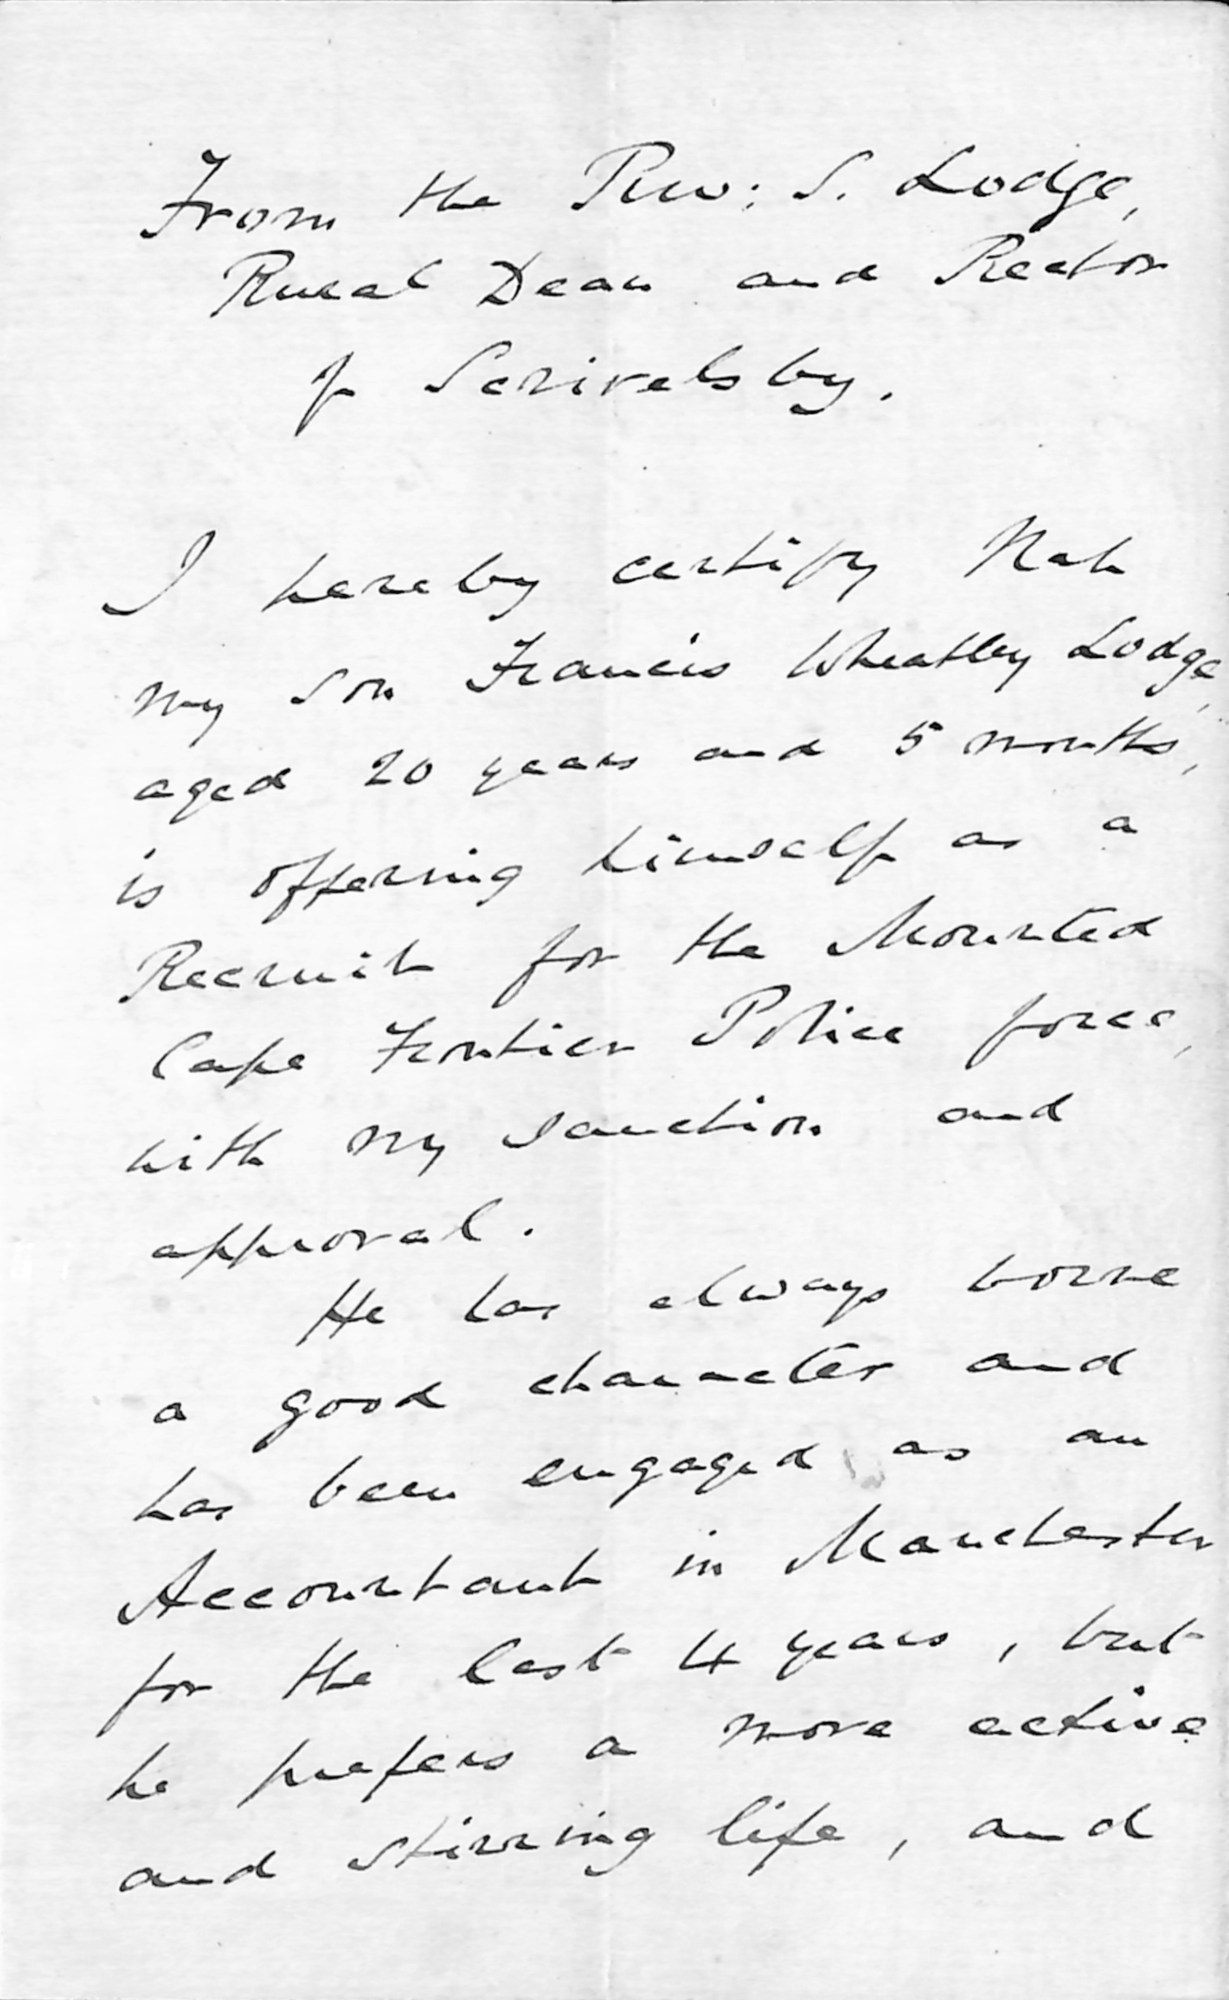 From the Rev: S. Lodge,
Rural Dean and Rector
of Scrivelsby.
I hereby certify that
my son Francis Wheatley Lodge,
aged 20 years and 5 months,
is offering himself as a
Recruit for the Mounted
Cape Frontier Police force,
with my sanction and
approval.
He has always borne
a good character and
has been engaged as an
Accountant in Manchester
for the last 4 years, but
he prefers a more active
and stirring life, and